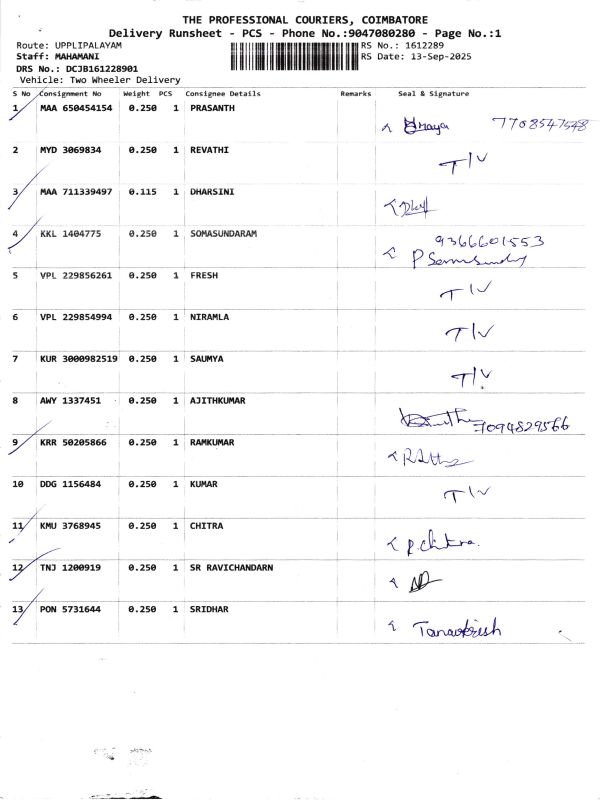 THE PROFESSIONAL COURIERS, COIMBATORE
Delivery Runsheet - PCS - Phone No.:9047080280 - Page No.:1
Route: UPPLIPALAYAM RS No.: 1612289
Staff: MAHAMANI RS Date: 13-Sep-2025
DRS No.: DCJB161228901
Vehicle: Two Wheeler Delivery
S No Consignment No Weight PCS Consignee Details Remarks Seal & Signature
1 MAA 650454154 0.250 1 PRASANTH
7708547548
2 MYD 3069834 0.250 1 REVATHI T/V
3 MAA 711339497 0.115 1 DHARSINI
4 KKL 1404775 0.250 1 SOMASUNDARAM 9366601553
5 VPL 229856261 0.250 1 FRESH T/V
6 VPL 229854994 0.250 1 NIRAMLA T/V
7 KUR 3000982519 0.250 1 SAUMYA T/V
8 AWY 1337451 0.250 1 AJITHKUMAR 7094829566
9 KRR 50205866 0.250 1 RAMKUMAR
10 DDG 1156484 0.250 1 KUMAR T/V
11 KMU 3768945 0.250 1 CHITRA
P. Chitra.
12 TNJ 1200919 0.250 1 SR RAVICHANDARN
13 PON 5731644 0.250 1 SRIDHAR